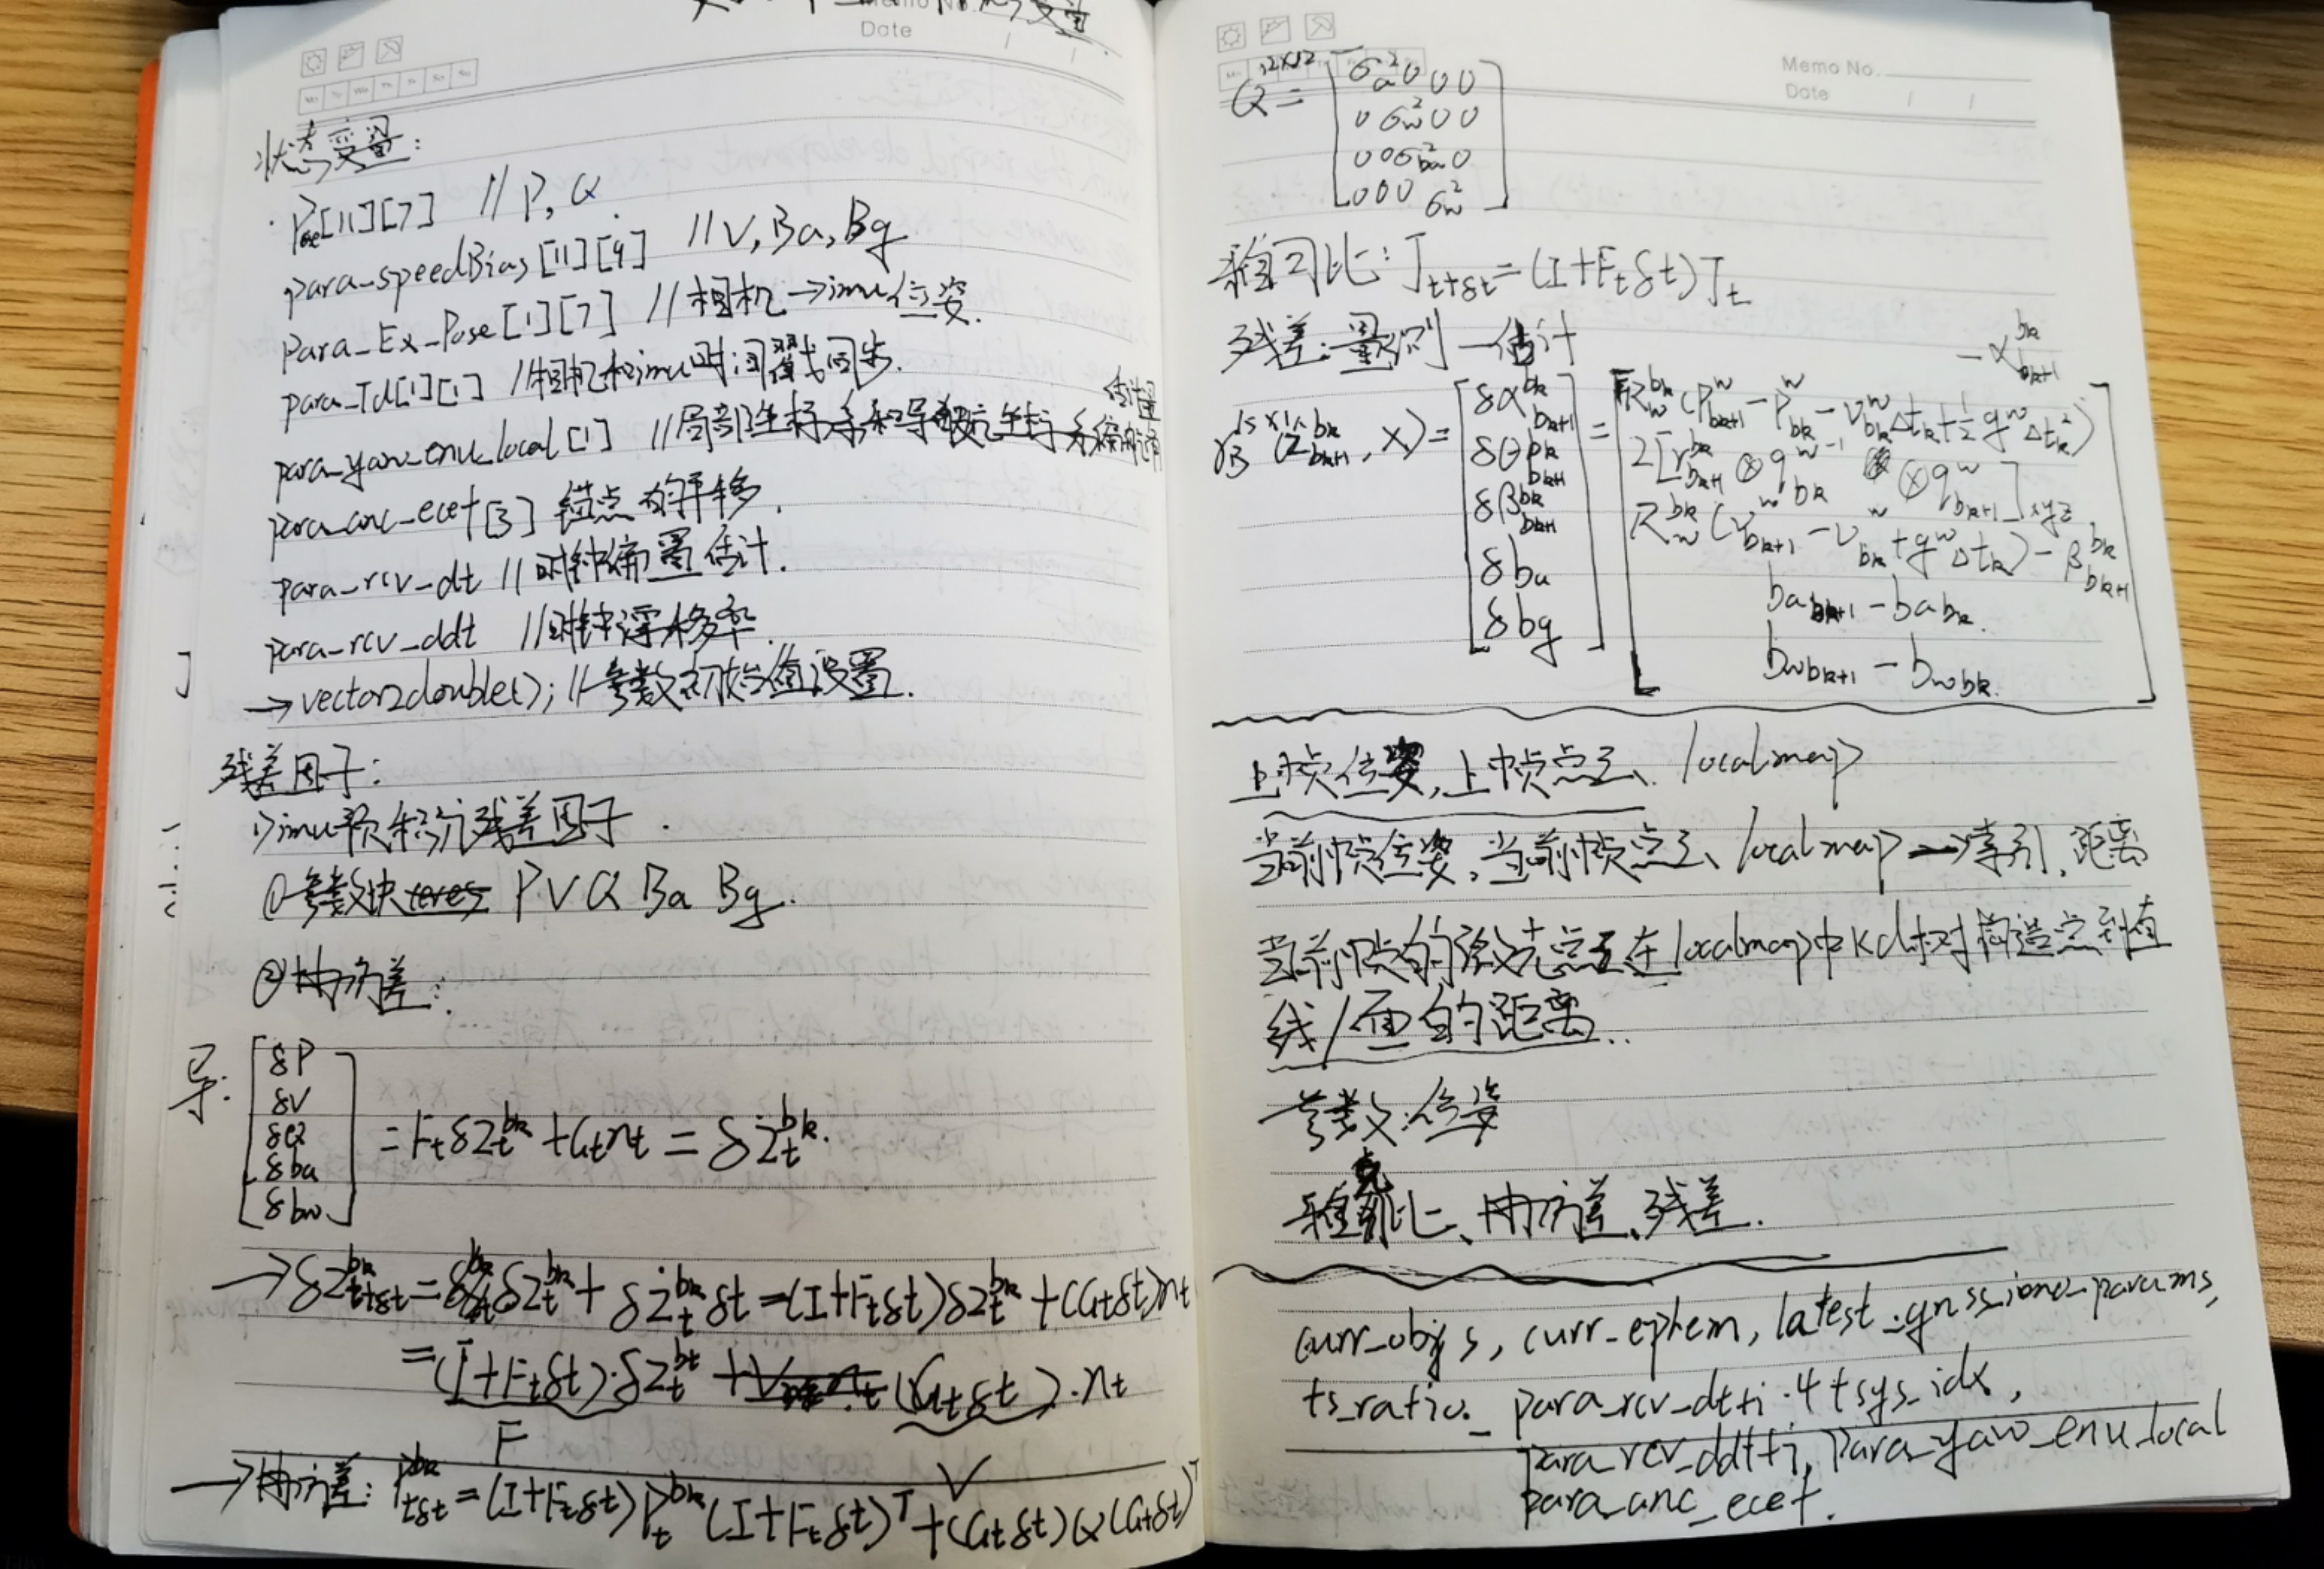 Date
状态变量:
Pose[11][7] // P, Q
para_speedBias[11][9] // V, Ba, Bg
para_Ex_Pose[1][7] // 相机→imu位姿.
para_Td[1][1] // 相机和imu时间戳同步.
para_yaw_enu_local[1] // 局部坐标系和导航坐标系
para_anc_ecef[3] 锚点的平移.
para_rcv_dt // 时钟偏置估计.
para_rcv_ddt // 时钟漂移率.
→ vector2double(); // 参数初始值设置.
残差因子:
1) imu预积分残差因子.
①参数块 P V Q Ba Bg.
②协方差:
导: [δP δv δθ δba δbw] = F_t δz_t^{bk} + G_t n_t = δż_t^{bk}.
→ δz_{t+δt}^{bk} = δz_t^{bk} + δż_t^{bk} δt = (I+F_tδt)δz_t^{bk} + (G_tδt)n_t
= (I+F_tδt)·δz_t^{bk} + (G_tδt)·n_t
F V
→协方差: P_{t+δt}^{bk} = (I+F_tδt)P_t^{bk}(I+F_tδt)^T + (G_tδt)Q(G_tδt)^T
Memo No.
Date
Q^{12x12} = [σ_a^2 0 0 0
0 σ_w^2 0 0
0 0 σ_{ba}^2 0
0 0 0 σ_w^2]
雅可比: J_{t+δt} = (I+F_tδt)J_t
残差: 量测-估计
r_B^{15x1}(ẑ_{bk+1}^{bk}, X) = [δα_{bk+1}^{bk} = [R_w^{bk}(P_{bk+1}^w - P_{bk}^w - v_{bk}^w Δt_k + ½ g^w Δt_k^2) - α_{bk+1}^{bk}
δθ_{bk+1}^{bk} 2[r_{bk+1}^{bk} ⊗ q_{bk}^{w^{-1}} ⊗ q_{bk+1}^w]_{xyz}
δβ_{bk+1}^{bk} R_w^{bk}(v_{bk+1}^w - v_{bk}^w + g^w Δt_k) - β_{bk+1}^{bk}
δba ba_{bk+1} - ba_{bk}.
δbg] bw_{bk+1} - bw_{bk}.]
上帧位姿, 上帧点云、localmap
当前帧位姿, 当前帧点云、localmap → 索引, 距离
当前帧的激光点云在localmap中kd树对构造点到直
线/面的距离..
参数: 位姿
雅克比、协方差、残差.
curr_obs, curr_ephem, latest_gnss_iono_params,
ts_ratio. para_rcv_dt+i·4+sys_idx,
para_rcv_ddt+i, para_yaw_enu_local
para_anc_ecef.